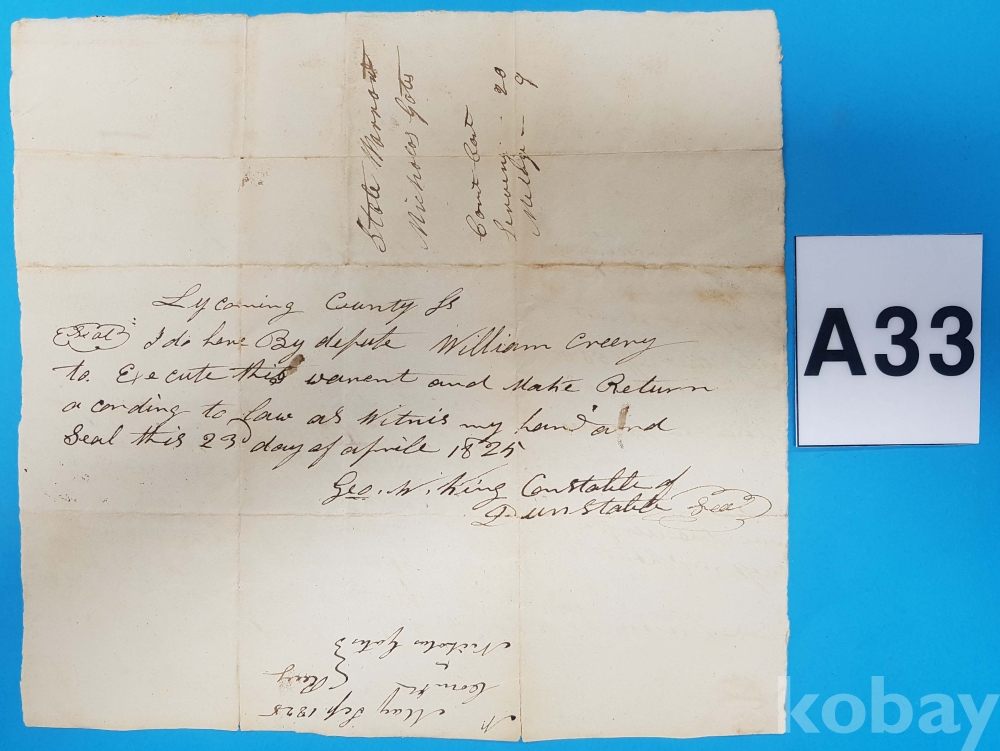 State Warrant
Nicholas Gates
Const Cost
Serving - 20
Milage - 9
Lycoming County Ss
Seal I do here By depute William Creery
to Execute this warent and Make Return
a cording to law as Witnis my hand and
Seal this 23d day of aprile 1825
Geo. W. King Constable of
Dunstable Seal
Nicholas Gates
Com
May Sep. 1825
A33
kobay